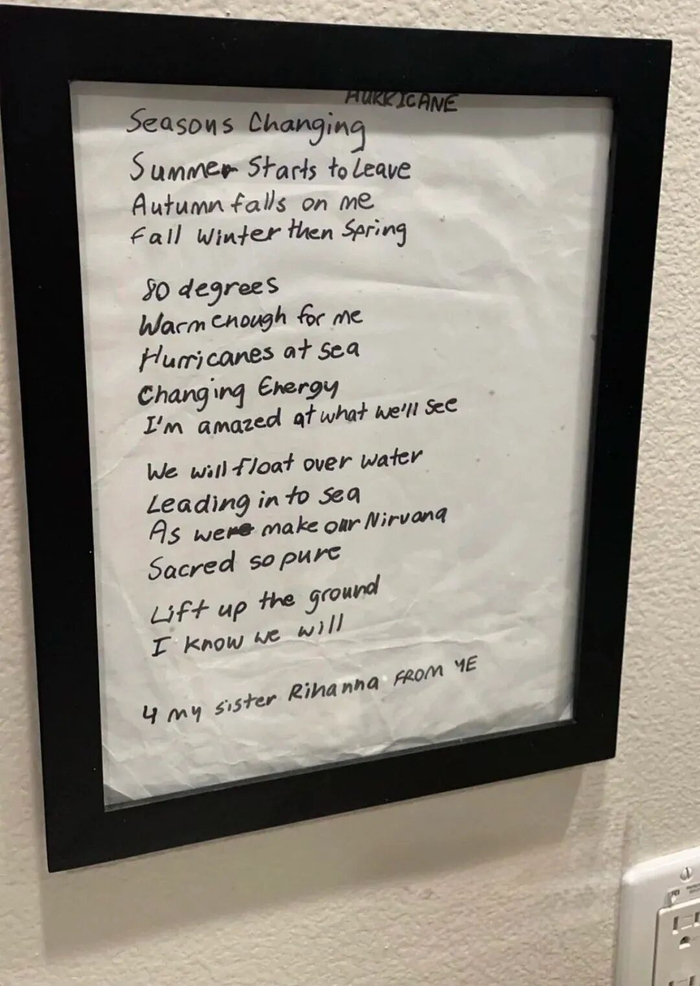 HURRICANE
Seasons Changing
Summer Starts to Leave
Autumn falls on me
Fall Winter then Spring
80 degrees
Warm enough for me
Hurricanes at sea
Changing Energy
I'm amazed at what we'll see
We will float over water
Leading in to sea
As were make our Nirvana
Sacred so pure
Lift up the ground
I know we will
4 my sister Rihanna FROM YE